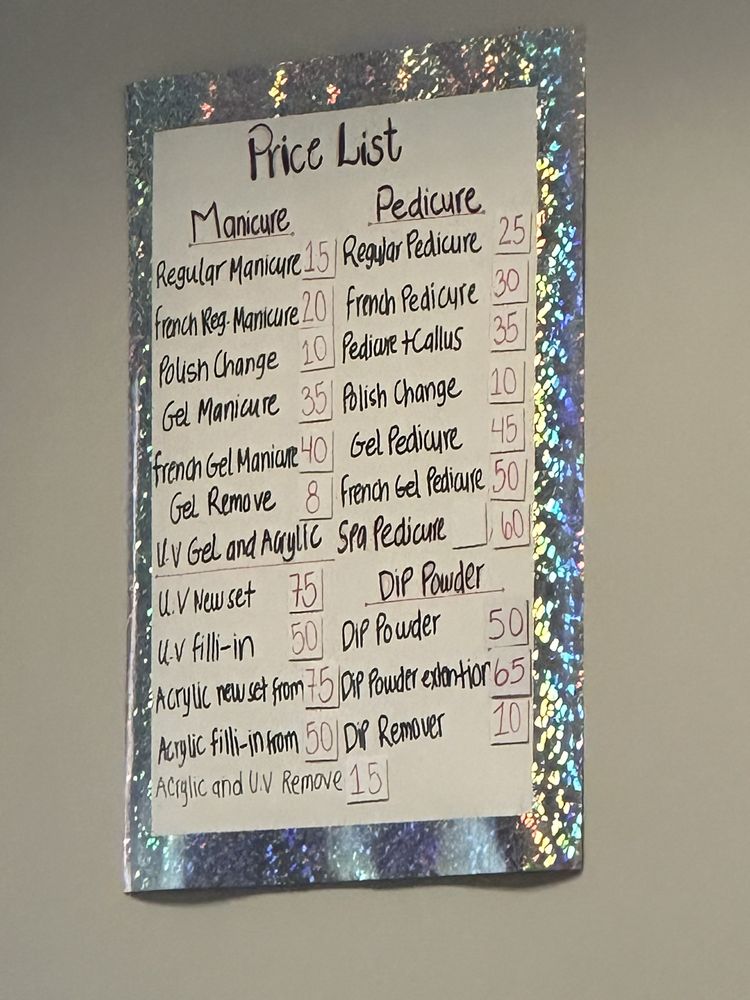 Price List
Manicure
Regular Manicure 15
French Reg. Manicure 20
Polish Change 10
Gel Manicure 35
French Gel Manicure 40
Gel Remove 8
U.V Gel and Acrylic
U.V New set 75
U.V filli-in 50
Acrylic new set from 75
Acrylic filli-in from 50
Acrylic and U.V Remove 15
Pedicure
Regular Pedicure 25
French Pedicure 30
Pedicure + Callus 35
Polish Change 10
Gel Pedicure 45
French Gel Pedicure 50
Spa Pedicure 60
Dip Powder
Dip Powder 50
Dip Powder extention 65
Dip Remover 10